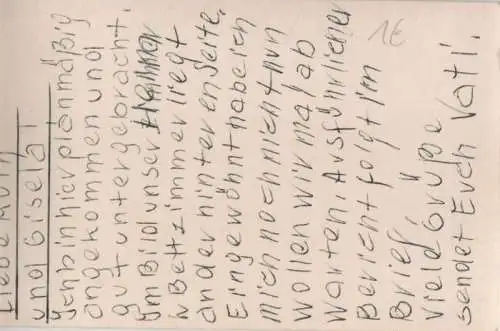 Liebe
und Gisela!
Ich bin hier planmäßig
angekommen und
gut untergebracht.
Im Bild unser
Bettzimmer liegt
an der hinteren Seite.
Eingewöhnt habe ich
mich noch nicht nun
wollen wir mal ab
warten. Ausführlicher
Bericht folgt im
Brief.
Viele Grüße
sendet Euch Vati.
1€